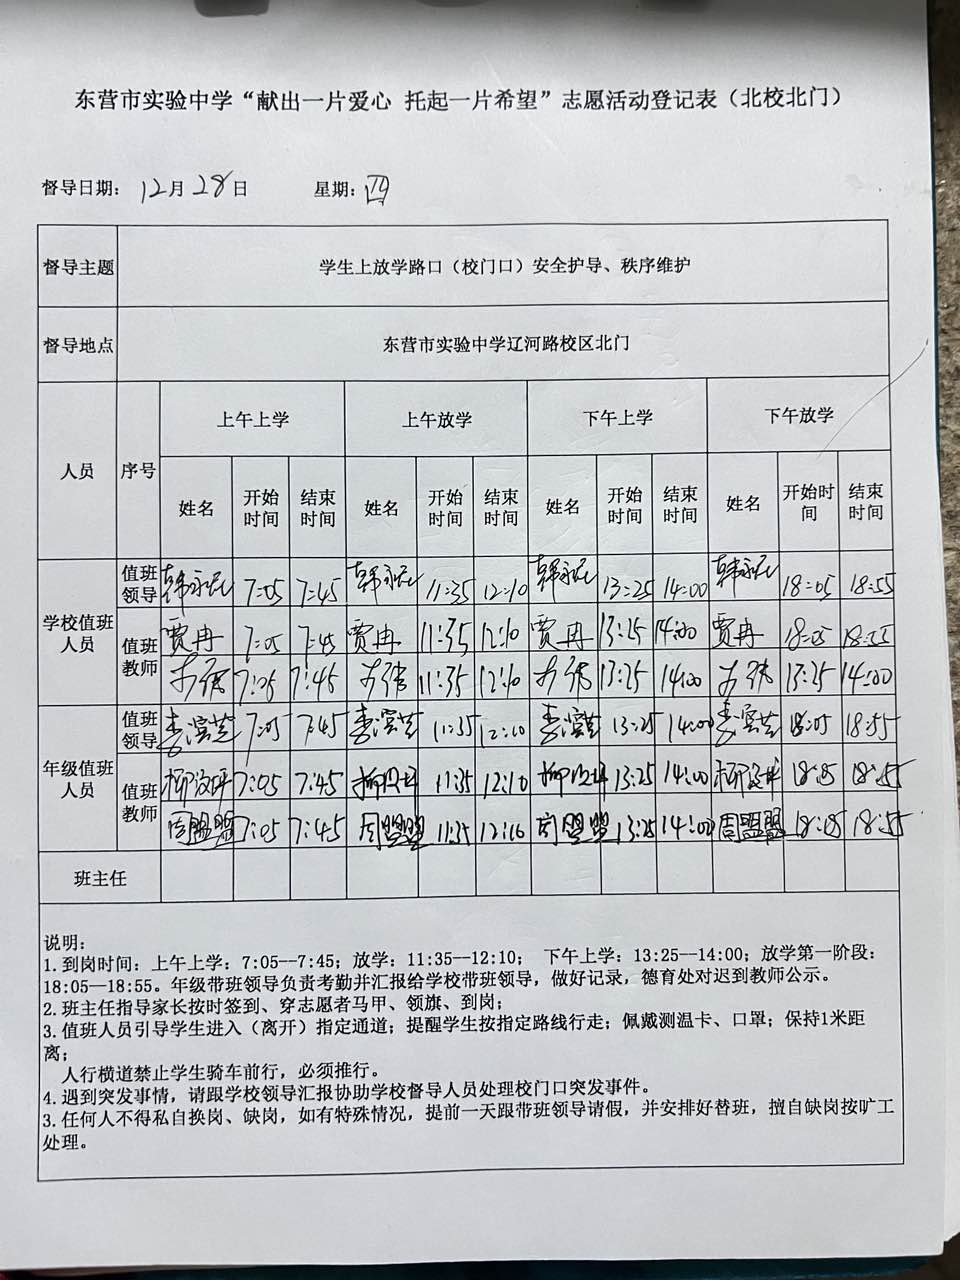 东营市实验中学“献出一片爱心 托起一片希望”志愿活动登记表（北校北门）
督导日期： 12月28日 星期：四
督导主题 学生上放学路口（校门口）安全护导、秩序维护
督导地点 东营市实验中学辽河路校区北门
人员 序号 上午上学 上午放学 下午上学 下午放学
姓名 开始时间 结束时间 姓名 开始时间 结束时间 姓名 开始时间 结束时间 姓名 开始时间 结束时间
学校值班人员 值班领导 7:05 7:45 11:35 12:10 13:25 14:00 18:05 18:55
值班教师 贾冉 7:05 7:45 贾冉 11:35 12:10 贾冉 13:25 14:00 贾冉 18:05 18:55
7:05 7:45 11:35 12:10 13:25 14:00 13:25 14:00
年级值班人员 值班领导 李滢芝 7:05 7:45 李滢芝 11:35 12:10 李滢芝 13:25 14:00 李滢芝 18:05 18:55
值班教师 7:05 7:45 11:35 12:10 13:25 14:00 18:05 18:55
周盟盟 7:05 7:45 周盟盟 11:35 12:10 周盟盟 13:25 14:00 周盟盟 18:05 18:55
班主任
说明：
1.到岗时间：上午上学：7:05--7:45；放学：11:35--12:10； 下午上学：13:25--14:00；放学第一阶段：
18:05—18:55。年级带班领导负责考勤并汇报给学校带班领导，做好记录，德育处对迟到教师公示。
2.班主任指导家长按时签到、穿志愿者马甲、领旗、到岗；
3.值班人员引导学生进入（离开）指定通道；提醒学生按指定路线行走；佩戴测温卡、口罩；保持1米距
离；
人行横道禁止学生骑车前行，必须推行。
4.遇到突发事情，请跟学校领导汇报协助学校督导人员处理校门口突发事件。
3.任何人不得私自换岗、缺岗，如有特殊情况，提前一天跟带班领导请假，并安排好替班，擅自缺岗按旷工
处理。